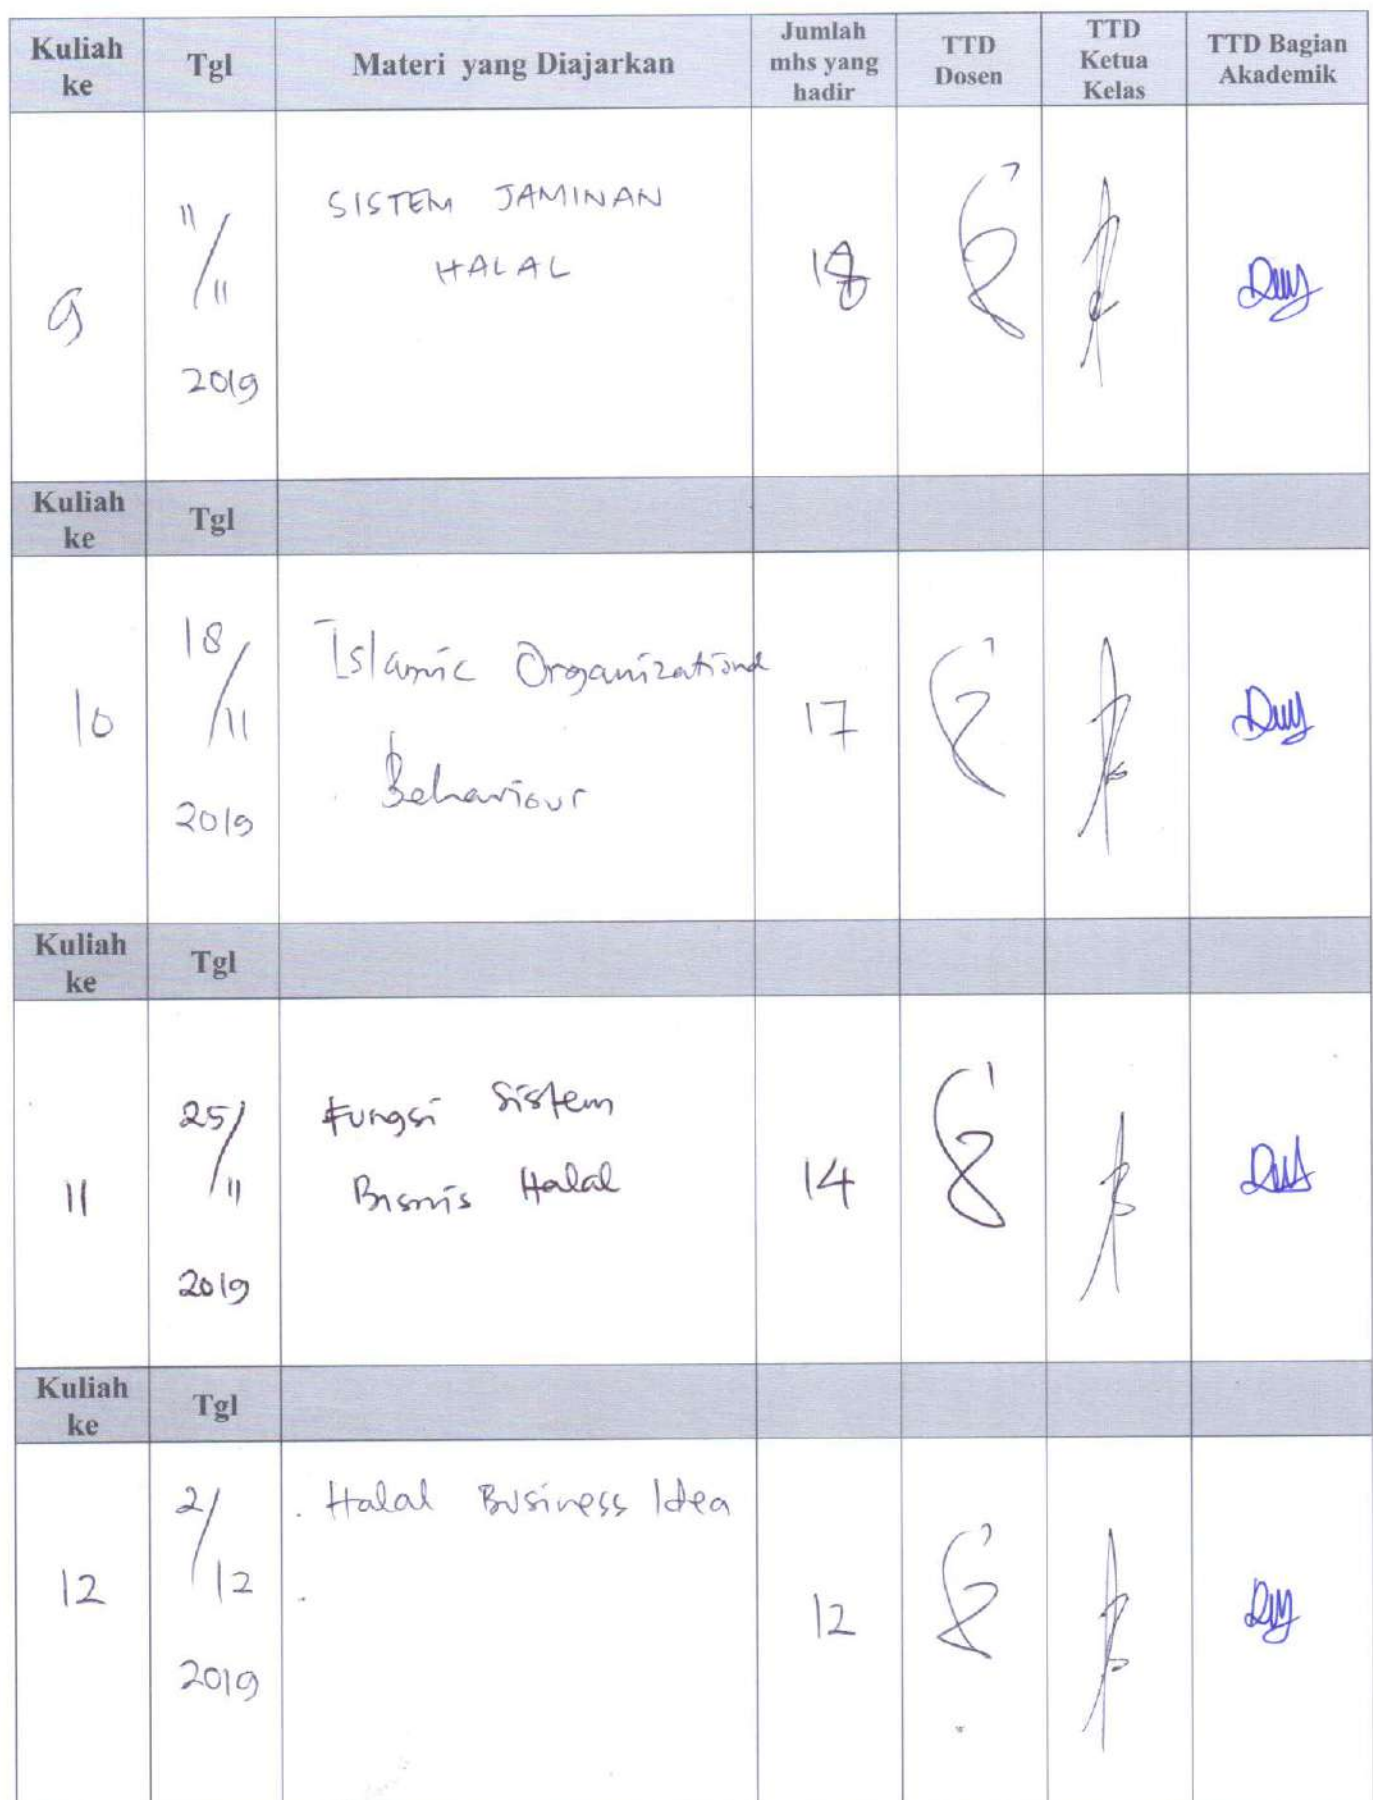 Kuliah ke Tgl Materi yang Diajarkan Jumlah mhs yang hadir TTD Dosen TTD Ketua Kelas TTD Bagian Akademik
9 11/11 2019 SISTEM JAMINAN HALAL
Kuliah ke Tgl
10 18/11 2019 Islamic Organizational Behaviour 17
Kuliah ke Tgl
11 25/11 2019 Fungsi Sistem Bisnis Halal 14
Kuliah ke Tgl
12 2/12 2019 Halal Business Idea 12